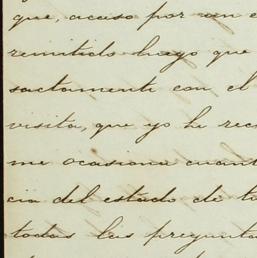 que, acaso por un e
remitido luego que
sactamente con el
visita, que yo he rec
me ocasiona cuant
cia del estado de to
todas las pregunta